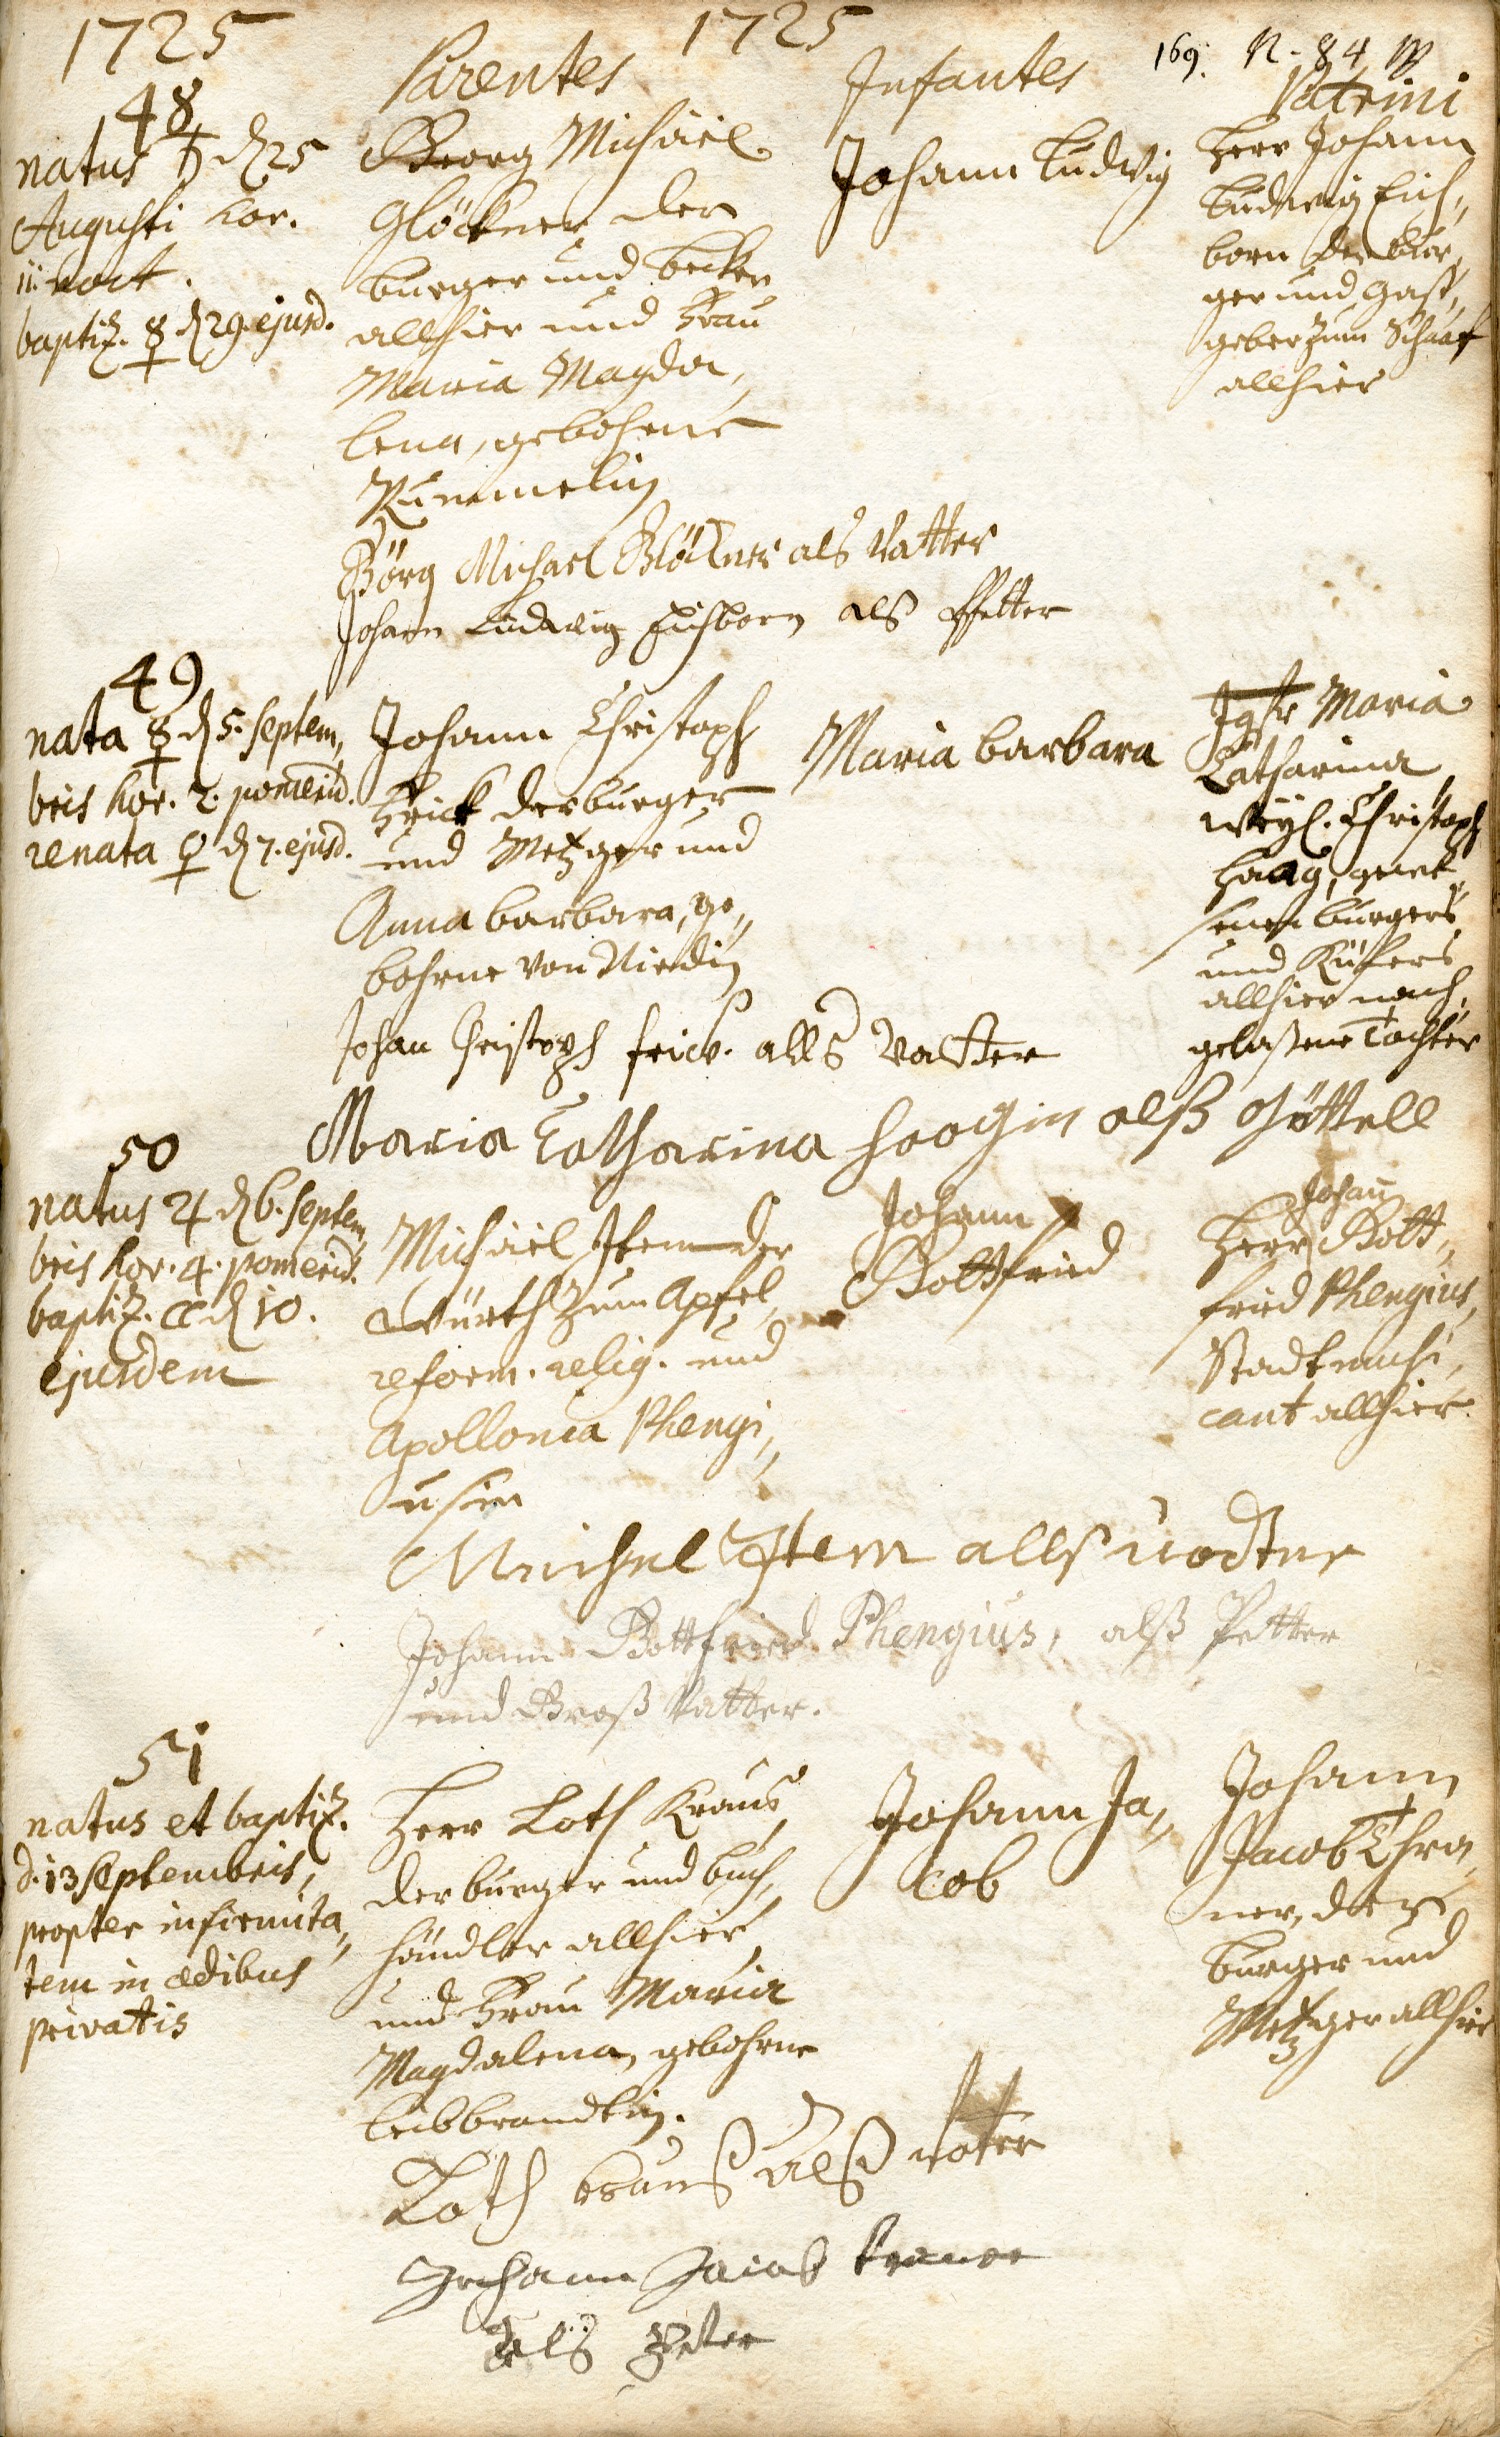 1725 1725
169. N. 84
Parentes Infantes Patrini
48
natus ♄ d 25
Augusti hor.
11. noct.
baptiz. ☿ d 29. ejusd.
Georg Michäel
Glöckner der
burger und becker
allhier und Frau
Maria Magda„
lena, gebohrne
Kümmelin
Johann Ludwig
Herr Johann
Ludwig Eich„
born der bur„
ger und Gast„
geber zum Schaaf
allhier
Görg Michael Glöckner als Vatter
Johann Ludwig Eichborn als Pfetter
49
nata ☿ d 5. Septem„
bris hor. 2. pomerid.
renata ♀ d 7. ejusd.
Johann Christoph
Frick der burger
und Metzger und
Anna barbara, ge„
bohrne von Niedin
Maria barbara
Jgfr Maria
Catharina
weyl. Christoph
Haag, gewe„
senen burgers
und Küfers
allhier nach„
gelaßene Tochter
Johan Christoph frick. alls Vatter
Maria Catharina Haagin alß Göttell
50
natus ♃ d 6. Septem„
bris hor. 4. pomerid.
baptiz. ☾ d 10.
ejusdem
Michäel Item der
Würth zum Apfel,
reform. relig. und
Apollonia Phengi„
usin
Johann
Gottfried
Johan
Herr Gott„
fried Phengius,
Stadtmusi„
cant allhier.
Michel Item allß vadter
Johann Gottfried Phengius, alß Petter
und Groß Vatter.
51
natus et baptiz.
d. 13 Septembris,
propter infirmita„
tem in ædibus
privatis
Herr Loth Kraus,
der burger und buch„
händler allhier,
und Frau Maria
Magdalena, gebohrne
Leibbrandtin.
Johann Ja„
cob
Johann
Jacob Thra„
ner, der
burger und
Metzger allhier
Loth krauß alß vater
Johann Jacob
als Peter